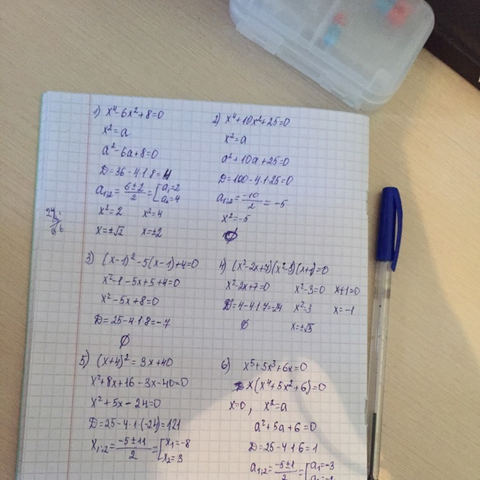 1) x⁴-6x²+8=0
x²=a
a²-6a+8=0
D=36-4·1·8=4
a₁,₂=(6±2)/2=[a₁=2 a₂=4
x²=2 x²=4
x=±√2 x=±2
2) x⁴+10x²+25=0
x²=a
a²+10a+25=0
D=100-4·1·25=0
a₁,₂=-10/2=-5
x²=-5
∅
3) (x-1)²-5(x-1)+4=0
x²-1-5x+5+4=0
x²-5x+8=0
D=25-4·1·8=-7
∅
4) (x²-2x+7)(x²-3)(x+1)=0
x²-2x+7=0 x²-3=0 x+1=0
D=4-4·1·7=-24 x²=3 x=-1
∅ x=±√3
5) (x+4)²=3x+40
x²+8x+16-3x-40=0
x²+5x-24=0
D=25-4·1·(-24)=121
x₁,₂=(-5±11)/2=[x₁=-8 x₂=3
6) x⁵+5x³+6x=0
x(x⁴+5x²+6)=0
x=0, x²=a
a²+5a+6=0
D=25-4·1·6=1
a₁,₂=(-5±1)/2=[a₁=-3